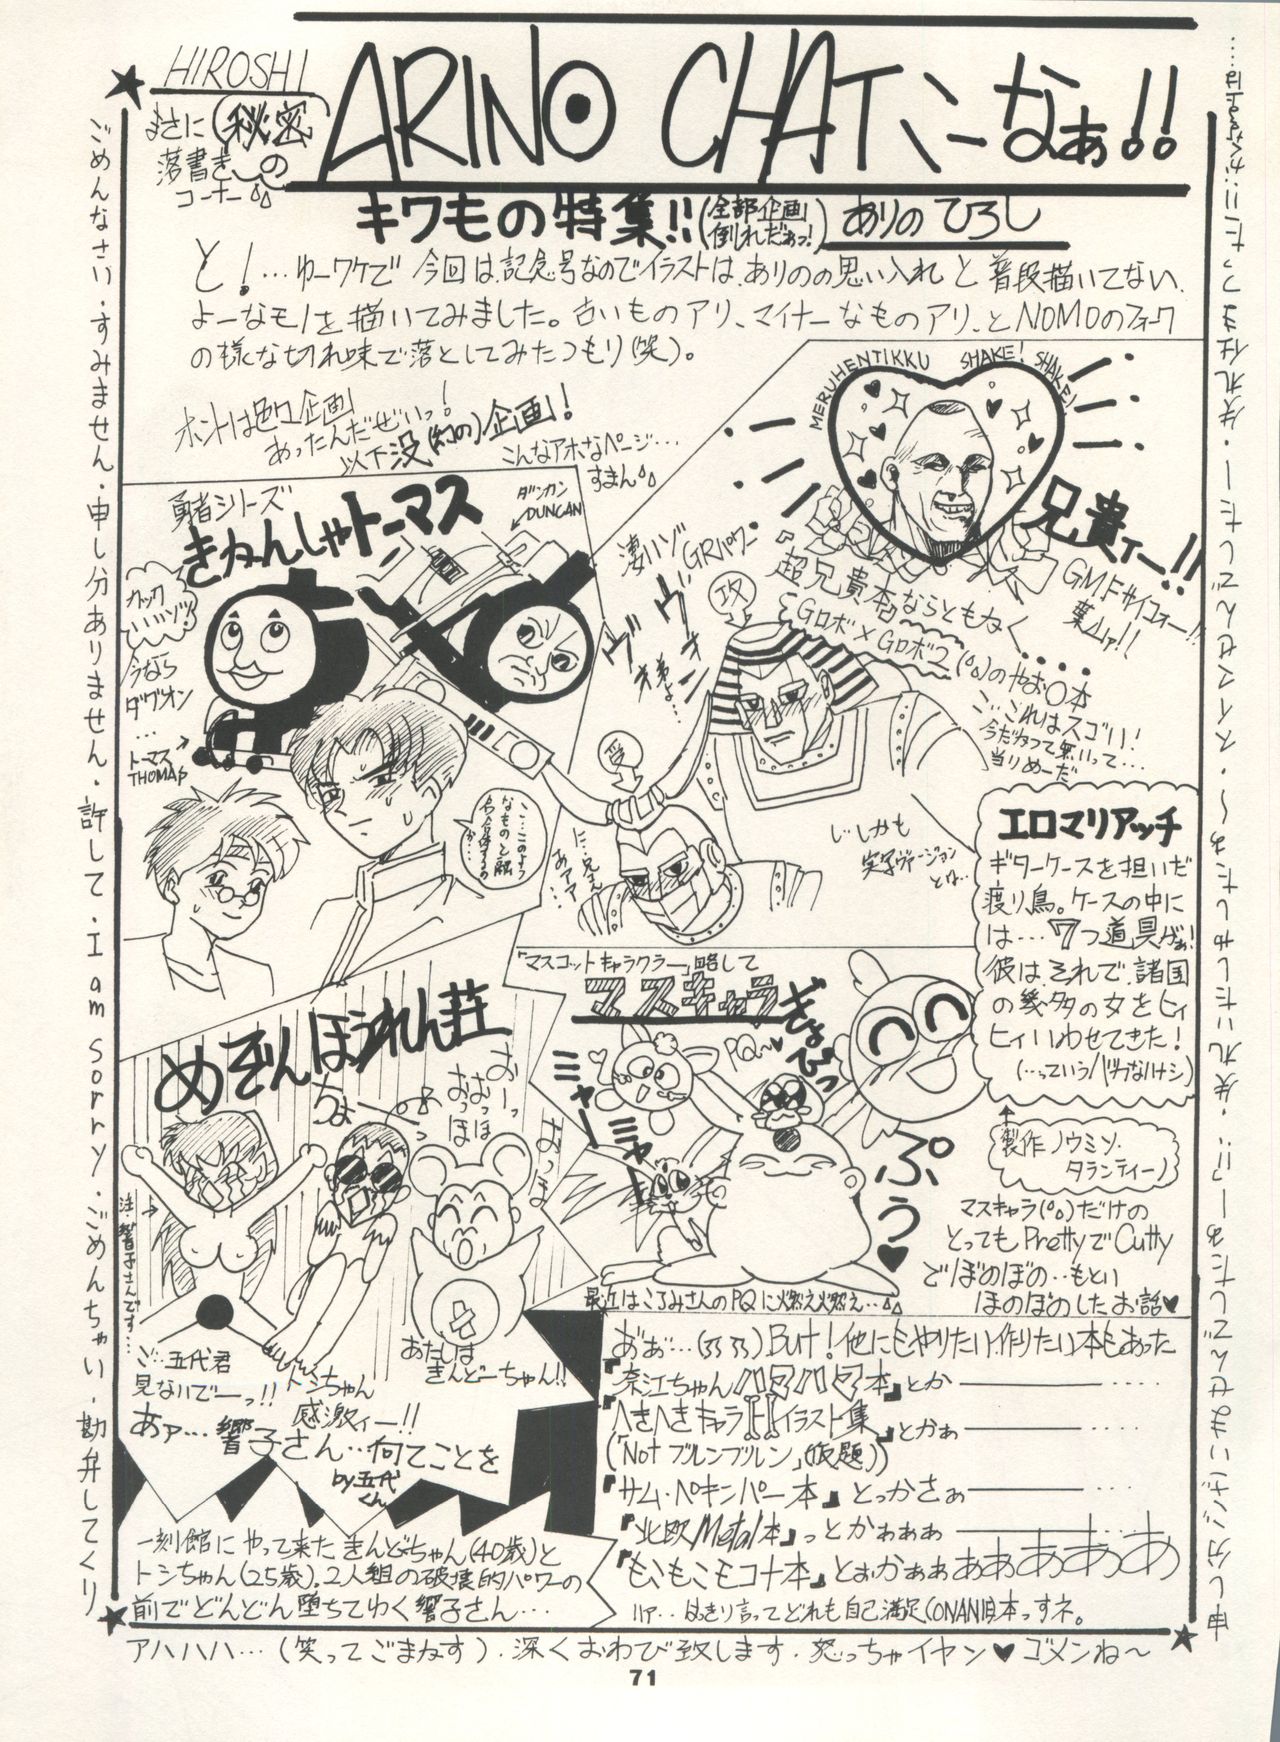 HIROSHI
ARINO CHATこーなぁ!!
まさに秘密の
落書き
コーナー
キワもの特集!!(全部企画倒れだぁっ!)ありのひろし
と!…ゆーワケで今回は、記念号なのでイラストは、ありのの思い入れと普段描いてない、
よーなモノを描いてみました。古いものアリ、マイナーなものアリ、とNOMOのフォーク
の様な切れ味で落としてみたつもり(笑)。
ホントは色々企画
あったんだぜいっ!
以下没(幻の)企画!
こんなアホなページ…
すまん
勇者シリーズ
きかんしゃトーマス
ダンカン
DUNCAN
カックいいゾ!
今なら
ダグオン
…
トーマス
THOMAS
こ…このオレ
MERUHENTIKKU SHAKE! SHAKE!
兄貴ィー!!
GMFサイコォー!!
葉ムァ!!
凄いゾ
GRパワー
『超兄貴本』ならともかく
Gロボ×Gロボ2
のやお○本
こ…これはスゴい!
今だかつて無いって…
当りめーだ
攻
受
に、兄さん
あァァ…
し、しかも
実写ヴァージョン
とは…
エロマリアッチ
ギターケースを担いだ
渡り鳥。ケースの中に
は…7つ道具がぁ!
彼は、それで、諸国
の幾多の女をヒィ
ヒィいわせてきた!
(…っていうバカなハナシ)
製作ノウミソ・
タランティーノ
「マスコットキャラクター」略して
マスキャラ
ぎょぴっ
PQ〜
ミャーミャー
ぷぅ♥
マスキャラだけの
とってもPrettyでCutty
でぼのぼの…もとい
ほのぼのしたお話♥
最近はころみさんのPQに燃え燃え…
めぞんほうれん荘
ちょ
おーっ
おっほ
おっほ
注・響子さんです…
ご…五代君
見ないでーっ!!
トシちゃん
感激ィー!!
あたしは
きんどーちゃん!!
あァ…響子さん…何てことを
by五代くん
一刻館にやって来たきんどーちゃん(40歳)と
トシちゃん(25歳)、2人組の破壊的パワーの
前でどんどん堕ちてゆく響子さん…
あぁ…But!他にもやりたい、作りたい本もあった
『奈江ちゃんハァハァ本』とか
『へきへきキャライラスト集』とかぁ
(「Notブルンブルン」(仮題))
『サム・ペキンパー本』とっかさぁ
『北欧Metal本』っとかぁぁぁ
『もこもこモコナ本』とぉかぁぁぁぁああああ
はっきり言ってどれも自己満足(ONANI)本っすネ。
アハハハ…(笑ってごまかす)、深くおわび致します、怒っちゃイヤン♥ゴメンね〜
ごめんなさい・すみません・申し分ありません・許して・I am sorry・ごめんちゃい・勘弁してくり
71